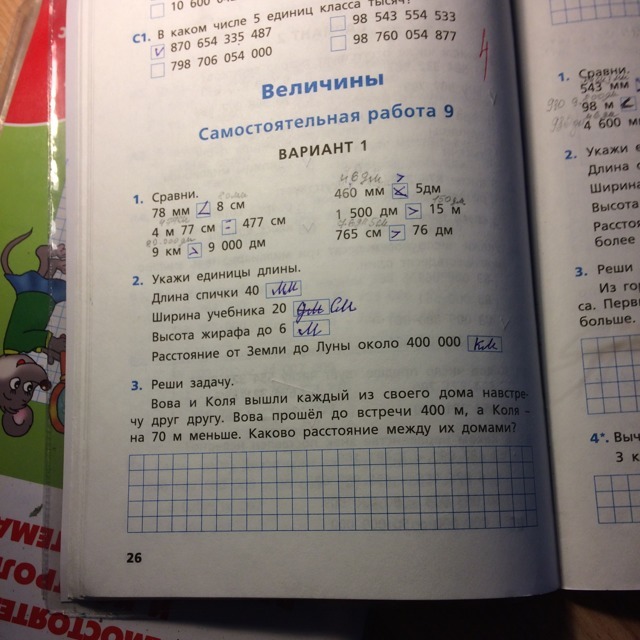 10 600 0
С1. В каком числе 5 единиц класса тысяч?
V 870 654 335 487
98 543 554 533
798 706 054 000
98 760 054 877
4
Величины
Самостоятельная работа 9
ВАРИАНТ 1
1. Сравни.
78 мм < 8 см
460 мм < 5дм
>
4 м 77 см = 477 см
1 500 дм > 15 м
9 км > 9 000 дм
765 см > 76 дм
2. Укажи единицы длины.
Длина спички 40 мм
Ширина учебника 20 дм см
Высота жирафа до 6 м
Расстояние от Земли до Луны около 400 000 км
3. Реши задачу.
Вова и Коля вышли каждый из своего дома навстре-
чу друг другу. Вова прошёл до встречи 400 м, а Коля –
на 70 м меньше. Каково расстояние между их домами?
26
1. Сравни.
543 мм
98 м <
4 600 м
2. Укажи е
Длина с
Ширина
Высота
Рассто
более
3. Реши
Из гор
са. Перв
больше.
4*. Выч
3 к